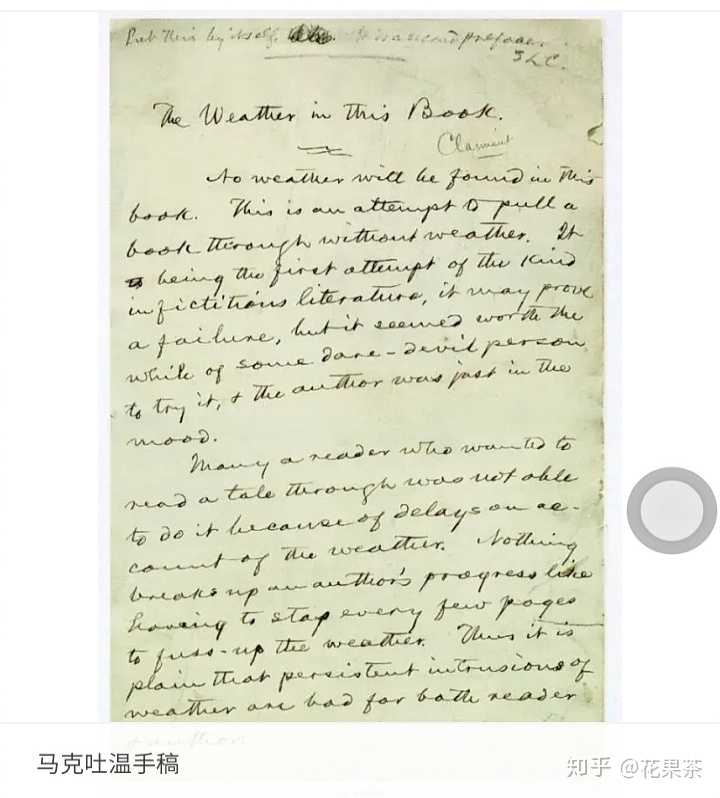 Put this by itself. It is a second preface.
S L C.
The Weather in this Book.
Claimant
No weather will be found in this
book. This is an attempt to pull a
book through without weather. It
being the first attempt of the kind
in fictitious literature, it may prove
a failure, but it seemed worth the
while of some dare-devil person
to try it, & the author was just in the
mood.
Many a reader who wanted to
read a tale through was not able
to do it because of delays on ac-
count of the weather. Nothing
breaks up an author's progress like
having to stop every few pages
to fuss-up the weather. Thus it is
plain that persistent intrusions of
weather are bad for both reader
& author.
马克吐温手稿
知乎 @花果茶